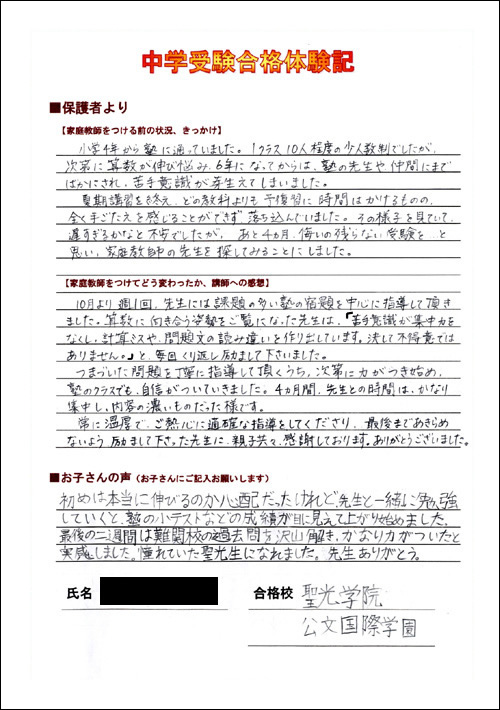 中学受験合格体験記
■保護者より
【家庭教師をつける前の状況、きっかけ】
小学4年から塾に通っていました。1クラス10人程度の少人数制でしたが、
次第に算数が伸び悩み、6年になってからは、塾の先生や仲間にまで
ばかにされ、苦手意識が芽生えてしまいました。
夏期講習を終え、どの教科よりも予復習に時間はかけるものの、
全く手ごたえを感じることができず、落ち込んでいました。その様子を見ていて、
遅すぎるかなと不安でしたが、あと4ヵ月、悔いの残らない受験を…と
思い、家庭教師の先生を探してみることにしました。
【家庭教師をつけてどう変わったか、講師への感想】
10月より週1回、先生には課題の多い塾の宿題を中心に指導して頂き
ました。算数に向き合う姿勢をご覧になった先生は、「苦手意識が集中力を
なくし、計算ミスや、問題文の読み違いを作り出しています。決して不得意では
ありません。」と、毎回くり返し励まして下さいました。
つまづいた問題を丁寧に指導して頂くうち、次第に力がつき始め、
塾のクラスでも、自信がついていきました。4カ月間、先生との時間は、かなり
集中し、内容の濃いものだった様です。
常に温厚で、ご熱心に適確な指導をしてくださり、最後まであきらめ
ないよう励まして下さった先生に、親子共々、感謝しております。ありがとうございました。
■お子さんの声（お子さんにご記入お願いします）
初めは本当に伸びるのか心配だったけれど、先生と一緒に勉強
していくと、塾の小テストなどの成績が目に見えて上がり始めました。
最後の二週間は難関校の過去問を沢山解き、かなり力がついたと
実感しました。憧れていた聖光生になれました。先生ありがとう。
氏名
合格校 聖光学院
公文国際学園